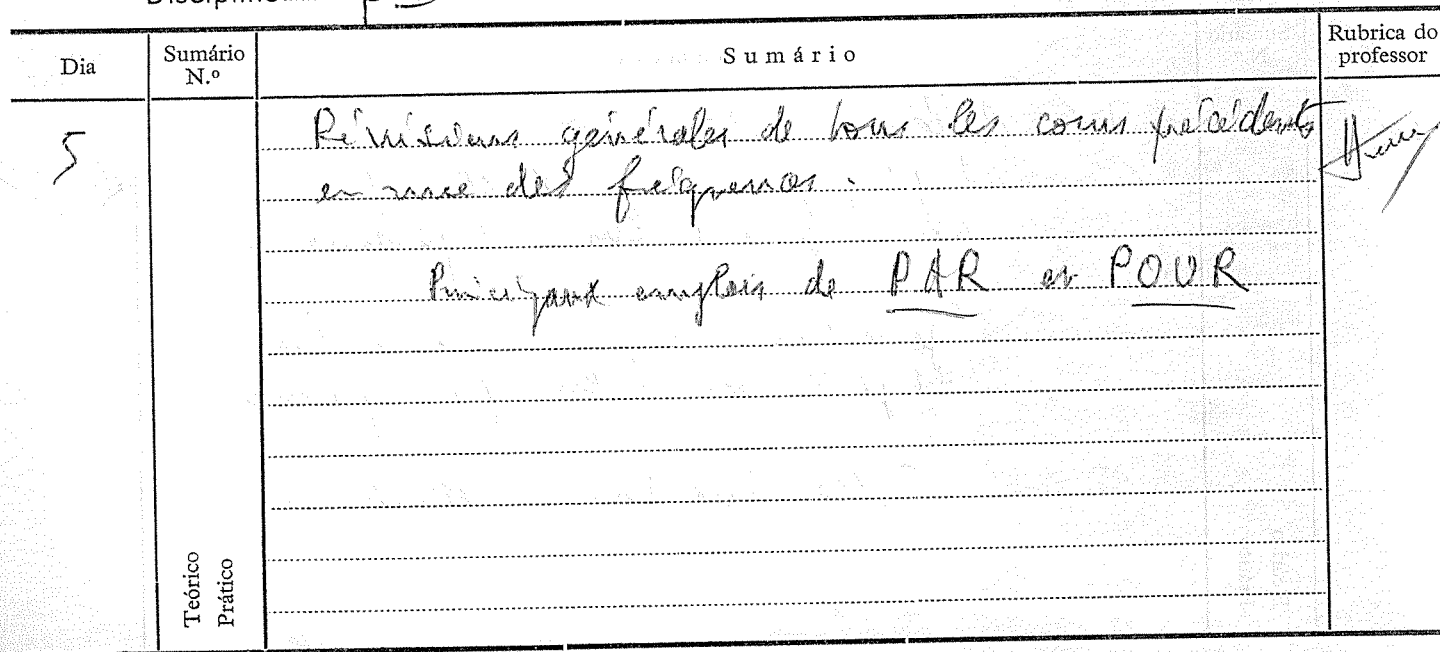 Dia
Sumário N.º
Sumário
Rubrica do professor
5
Révisions générales de tous les cours précédents
en vue des fréquences.
Principaux emplois de PAR et POUR
Teórico
Prático